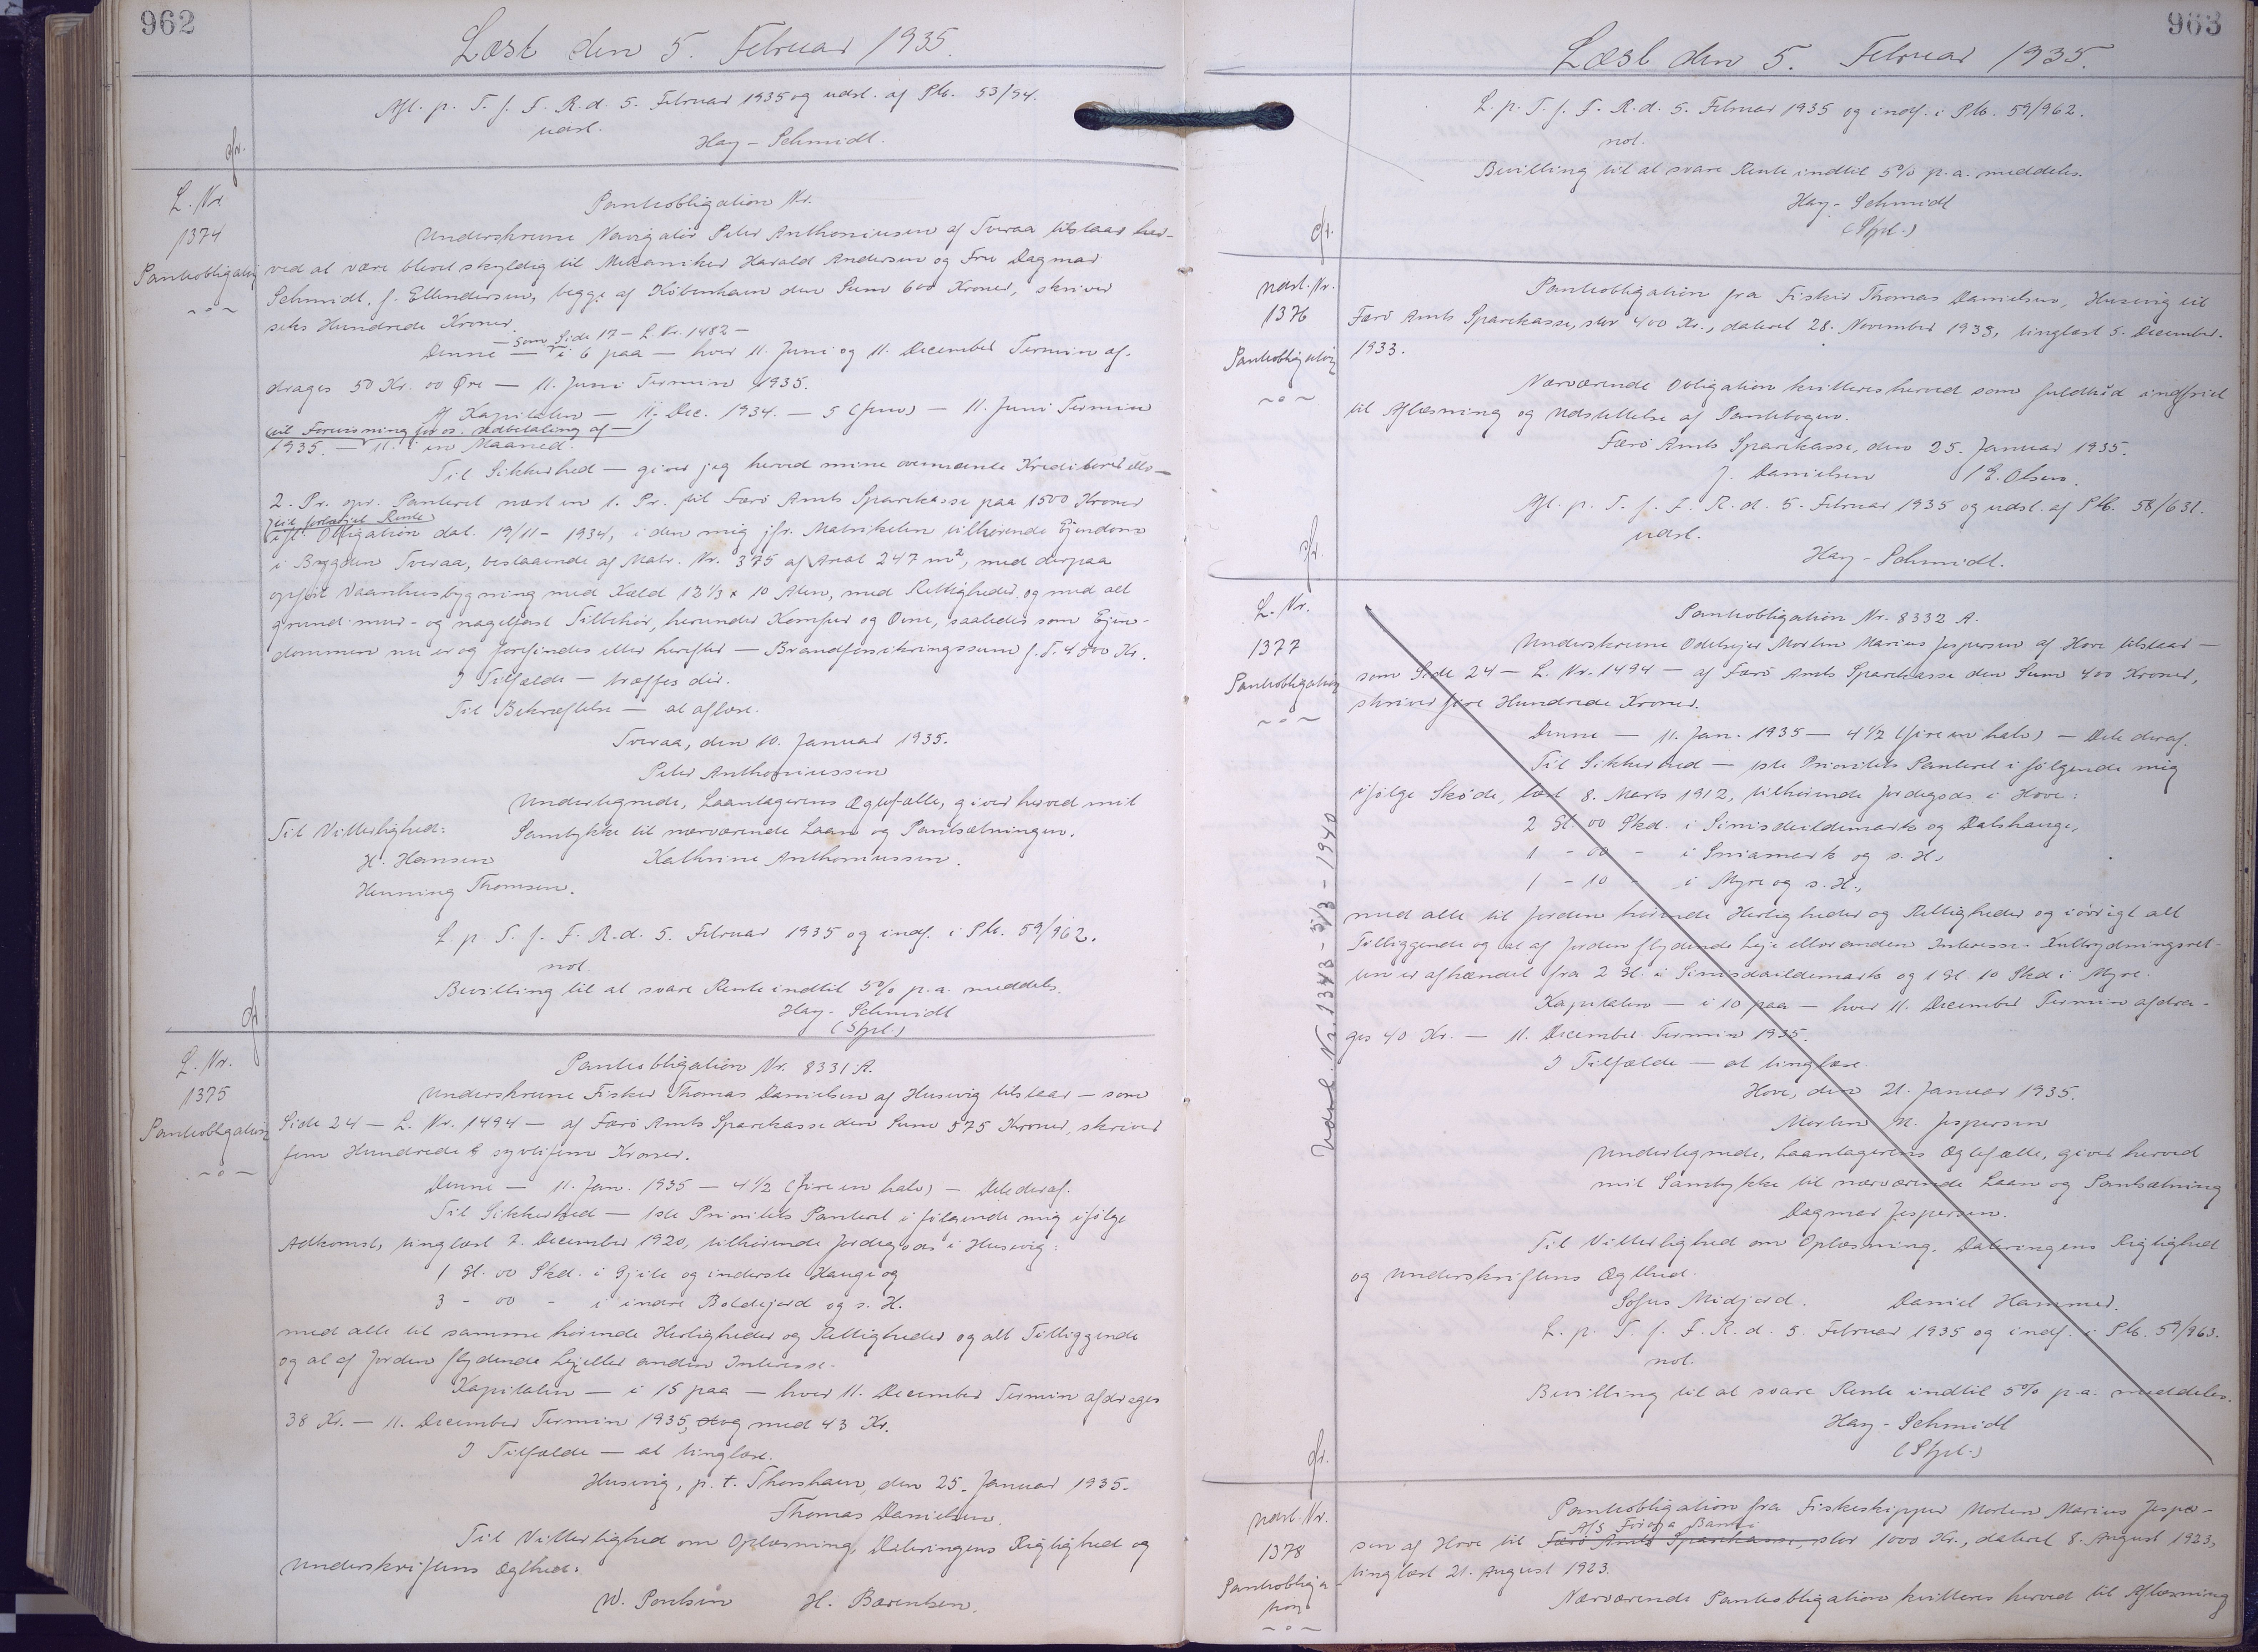 962
Læst den 5. Februar 1935.
Afl. p. T. f. F. R. d. 5. Februar 1935 og udsl. af Pb. 53/54.
udsl.
Hay-Schmidt.
L. Nr.
1374
Pantobligation
Pantobligation Nr.
Underskrevne Navigatør Peter Anthoniussen af Tveraa tilstaar her-
ved at være blevet skyldig til Mekaniker Harald Andersen og Fru Dagmar
Schmidt, f. Ellendersen, begge af København den Sum 600 Kroner, skriver
seks Hundrede Kroner.
— som Side 17 — L. Nr. 1482 —
Denne — i 6 paa — hver 11. Juni og 11. December Termin af-
drages 50 Kr. 00 Øre — 11. Juni Termin 1935.
Af Kapitalen — 11. Dec. 1934. — 5 (fem) — 11. Juni Termin
til Forevisning for os. Udbetaling af —
1935. — 11. i en Maaned.
Til Sikkerhed — giver jeg herved mine ovennævnte Kreditorer
2. Pr. opr. Panteret næst en 1. Pr. til Færø Amts Sparekasse paa 1500 Kroner
ifl. Obligation dat. 19/11 - 1934, i den mig jfr. Matrikelen tilhørende Ejendom
i Bygden Tveraa, bestaaende af Matr. Nr. 375 af Areal 247 m², med derpaa
opført Vaanhusbygning med Kæld 12 1/3 x 10 Alen, med Rettigheder og med alt
grund- mur- og nagelfast Tilbehør, herunder Komfur og Ovne, saaledes som Ejen-
dommen nu er og forefindes eller herefter — Brandforsikringssum f. T. 4500 Kr.
I Tilfælde — træffes der.
Til Bekræftelse — at aflæse.
Tveraa, den 10. Januar 1935.
Peter Anthoniussen
Undertegnede, Laantagerens Ægtefælle, giver herved mit
Til Vitterlighed: Samtykke til nærværende Laan og Pantsætningen.
H. Hansen Kathrine Anthoniussen.
Henning Thomsen.
L. p. T. f. F. R. d. 5. Februar 1935 og indf. i Pb. 59/962.
not.
Bevilling til at svare Rente indtil 5% p.a. meddeles.
Hay-Schmidt
(Stpl.)
L. Nr.
1375
Pantobligation
Pantobligation Nr. 8331 A.
Underskrevne Fisker Thomas Danielsen af Husevig tilstaar — som
Side 24 — L. Nr. 1494 — af Færø Amts Sparekasse den Sum 575 Kroner, skriver
fem Hundrede & syvtifem Kroner.
Denne — 11. Jan. 1935 — 4 1/2 (fire en halv) — Dele deraf.
Til Sikkerhed — 1ste Prioritets Panteret i følgende mig ifølge
Adkomst, tinglæst 7. December 1920, tilhørende Jordegods i Husevig:
1 Gl. 00 Skd. i Gjile og inderste Hauge og
3 - 00 - i indre Boldejord og s. H.
med alle til samme hørende Herligheder og Rettigheder og alt Tilliggende
og al af Jorden flydende Leje eller anden Interesse.
Kapitalen — i 15 paa — hver 11. December Termin afdrages
38 Kr. — 11. December Termin 1935, og med 43 Kr.
I Tilfælde — at tinglæse.
Husevig, p. t. Thorshavn, den 25. Januar 1935.
Thomas Danielsen.
Til Vitterlighed om Oplæsning, Dateringens Rigtighed og
Underskriftens Ægthed:
W. Poulsen H. Barentsen.
963
Læst den 5. Februar 1935.
L. p. T. f. F. R. d. 5. Februar 1935 og indf. i Pb. 59/962.
not.
Bevilling til at svare Rente indtil 5% p.a. meddeles.
Hay-Schmidt
(Stpl.)
Udsl. Nr.
1376
Pantobligation
Pantobligation fra Fisker Thomas Danielsen, Husevig til
Færø Amts Sparekasse, stor 400 Kr., dateret 28. November 1933, tinglæst 5. December
1933.
Nærværende Obligation kvitteres herved som fuldtud indfriet
til Aflæsning og Udslettelse af Pantebogen.
Færø Amts Sparekasse, den 25. Januar 1935.
J. Danielsen / E. Olsen.
Afl. p. T. f. F. R. d. 5. Februar 1935 og udsl. af Pb. 58/631.
udsl.
Hay-Schmidt.
L. Nr.
1377
Pantobligation
Udsl. Nr. 1343 - 5/3 - 1940
Pantobligation Nr. 8332 A.
Underskrevne Odelsejer Morten Marius Jespersen af Hove tilstaar —
som Side 24 — L. Nr. 1494 — af Færø Amts Sparekasse den Sum 400 Kroner,
skriver fire Hundrede Kroner.
Denne — 11. Jan. 1935 — 4 1/2 (fire en halv) — Dele deraf.
Til Sikkerhed — 1ste Prioritets Panteret i følgende mig
ifølge Skøde, læst 8. Marts 1912, tilhørende Jordegods i Hove:
2 Gl. 00 Skd. i Simisdeildemark og Dalshauge,
1 - 00 - i Sniamark og s. H.,
1 - 10 - i Myre og s. H.,
med alle til Jorden hørende Herligheder og Rettigheder og iøvrigt alt
Tilliggende og al af Jorden flydende Leje eller anden Interesse. Kulbrydningsret-
ten er afhændet fra 2 Gl. i Simisdeildemark og 1 Gl. 10 Skd i Myre.
Kapitalen — i 10 paa — hver 11. December Termin afdra-
ges 40 Kr. — 11. December Termin 1935.
I Tilfælde — at tinglæse.
Hove, den 21. Januar 1935.
Morten M. Jespersen
Undertegnede, Laantagerens Ægtefælle, giver herved
mit Samtykke til nærværende Laan og Pantsætning
Dagmar Jespersen.
Til Vitterlighed om Oplæsning, Dateringens Rigtighed
og Underskriftens Ægthed.
Sofus Midjord. Daniel Hammer.
L. p. T. f. F. R. d. 5. Februar 1935 og indf. i Pb. 59/963.
not.
Bevilling til at svare Rente indtil 5% p.a. meddeles.
Hay-Schmidt
(Stpl.)
Udsl. Nr.
1378
Pantobliga
tion
Pantobligation fra Fiskeskipper Morten Marius Jesper-
A/S Føroya Banki
sen af Hove til Færø Amts Sparekasse, stor 1000 Kr., dateret 8. August 1923,
tinglæst 21. August 1923.
Nærværende Pantobligation kvitteres herved til Aflæsning